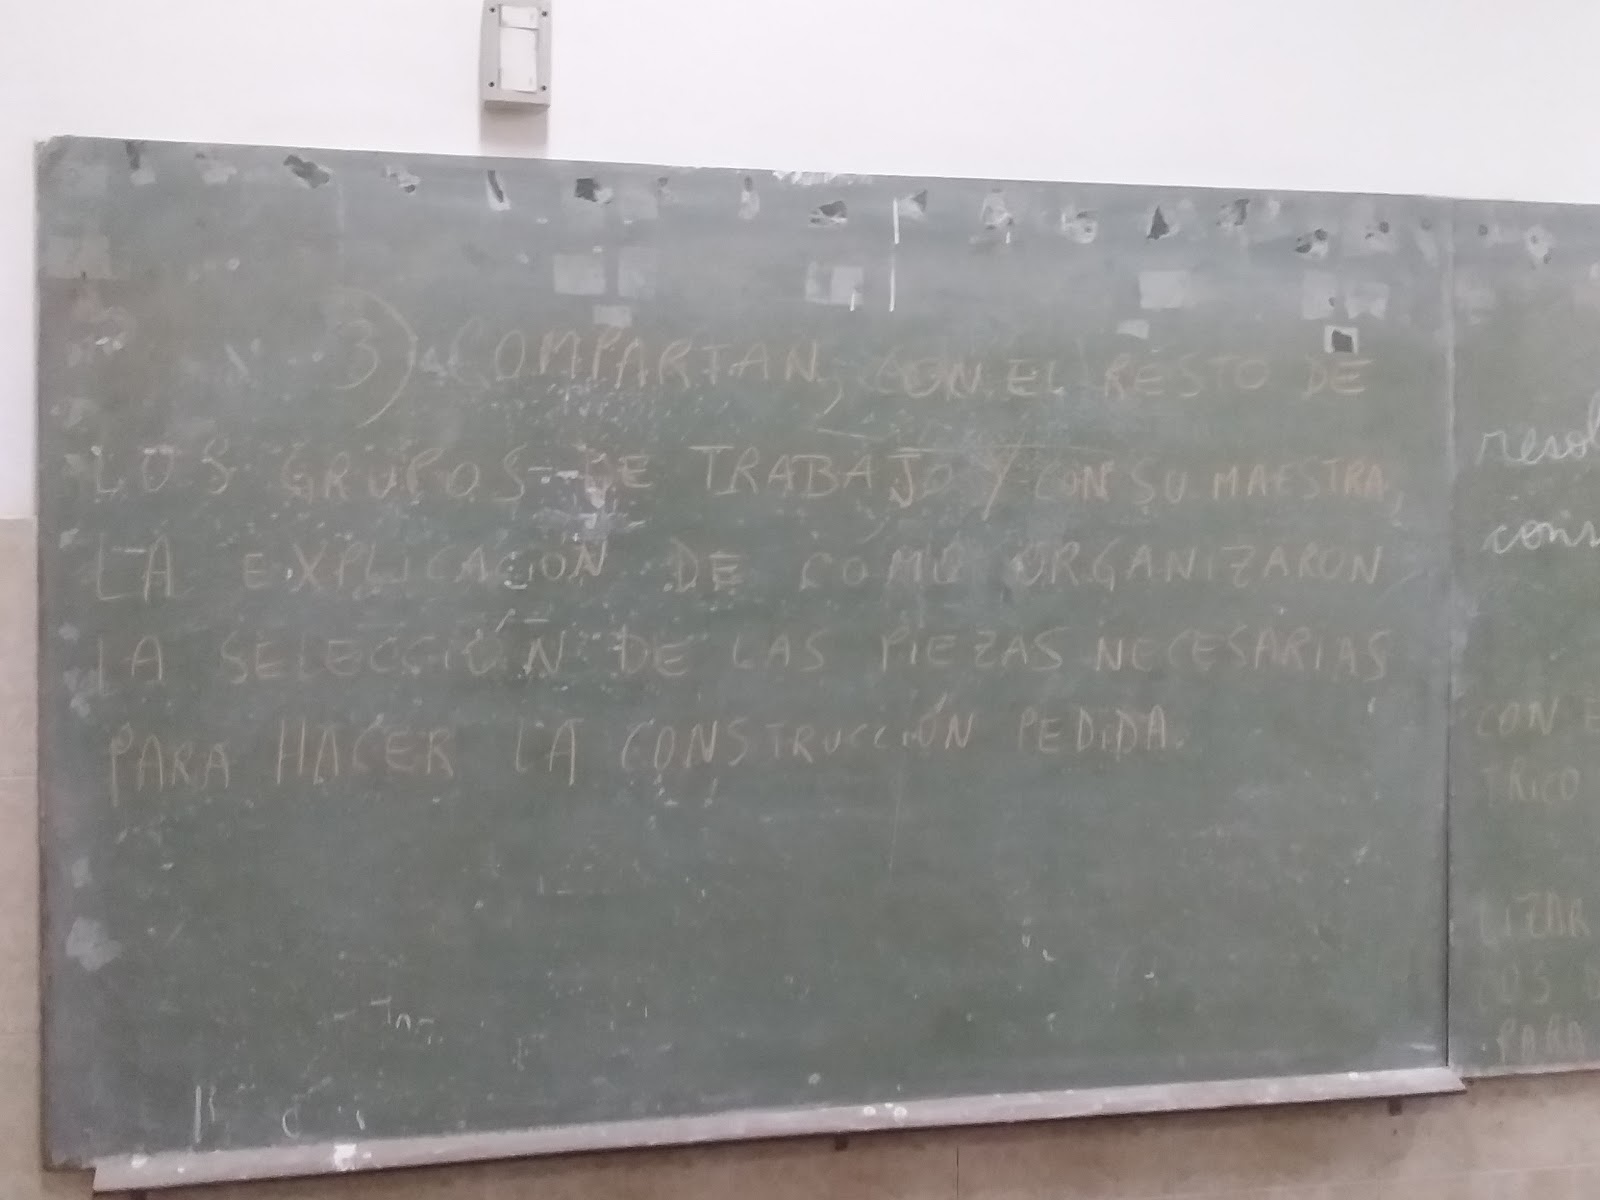 3) COMPARTAN, CON EL RESTO DE
LOS GRUPOS DE TRABAJO Y CON SU MAESTRA,
LA EXPLICACION DE COMO ORGANIZARON
LA SELECCIÓN DE LAS PIEZAS NECESARIAS
PARA HACER LA CONSTRUCCIÓN PEDIDA.
resol
cons
CON E
TRICO
LIZAR
LOS D
PARA